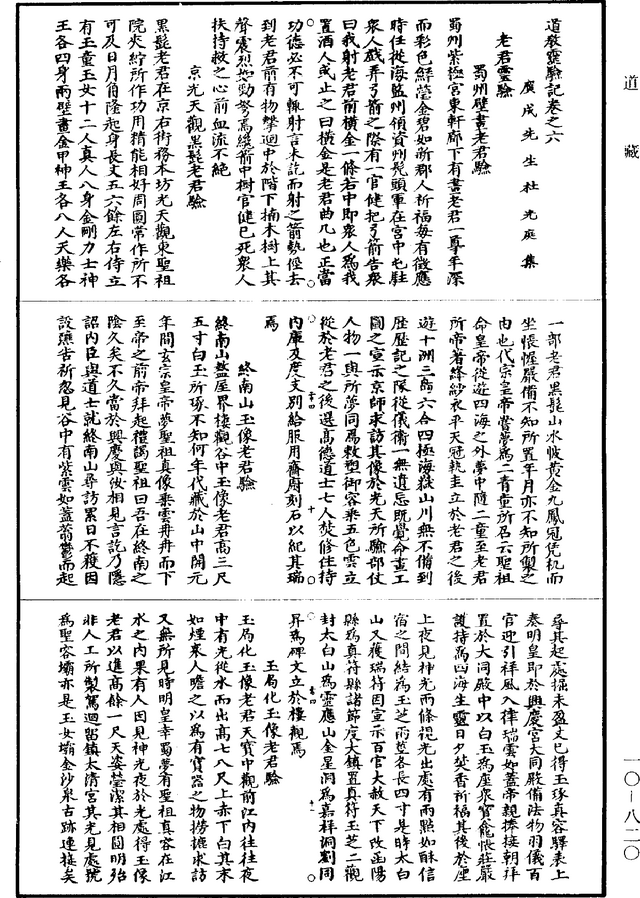 道藏
道教靈驗記卷之六
廣成先生杜光庭集
老君靈驗
蜀州壁畫老君驗
蜀州紫極宮東軒廊下有畫老君一尊年深
而彩色鮮瑩金碧如新郡人祈福每有徵應
時任從海監州領資州髡頭軍在宮中屯駐
衆人戲弄弓箭之際有一官健把弓箭告衆
曰我射老君前橫金一條若中即衆人爲我
置酒人或止之曰橫金是老君曲几也正當
功德必不可輒射言未訖而射之箭勢僅去
到老君前有物擊迴中於階下楠木樹上其
聲震烈如勁弩焉纔箭中樹官健已死衆人
扶持救之心前血流不絕
京光天觀黑髭老君驗
黑髭老君在京右街務本坊光天觀東聖祖
院夾紵所作功用精能相好周圓常作所不
可及日月角隆起身長丈五六餘左右侍立
有玉童玉女十二人真人八身金剛力士神
王各四身兩壁畫金甲神王各八人天樂各
一部老君黑髭山水帔黃金九鳳冠凭机而
坐帳幄嚴備不知所置年月亦不知所製之
由也代宗皇帝嘗夢爲二青童所召云聖祖
命皇帝從遊四海之外夢中隨二童至老君
所帝著絳紗衣平天冠執圭立於老君之後
遊十洲三島六合四極海嶽山川無不備到
歷歷記之隊從儀衛一無遺忘既覺命畫工
圖之宣示京師求訪其像於光天所驗部仗
人物一與所夢同焉敕塑御容乘五色雲立
從於老君之後選高德道士七人焚修住持
內庫及度支別給服用齋厨刻石以紀其瑞
焉
終南山玉像老君驗
終南山盩厔界樓觀谷中玉像老君高三尺
五寸白玉所琢不知何年代藏於山中開元
年間玄宗皇帝夢聖祖真像乘雲冉冉而下
至帝之前帝拜起禮謁聖祖曰吾在終南之
陰久矣不久當於興慶與汝相見言訖乃隱
詔內臣與道士就終南山尋訪累日不獲因
設醮告祈忽見谷中有紫雲如蓋蓊鬱而起
尋其起處掘未盈丈已得玉琢真容驛表上
奏明皇即於興慶宮大同殿備法物羽儀百
官迎引祥風入律瑞雲如蓋帝親捧接朝拜
置於大同殿中以白玉爲座衆寶龕帳莊嚴
護持爲四海生靈日夕焚香祈福其後於座
上夜見神光兩條視光出處有兩點如酥信
宿之間結爲玉芝兩莖各長四寸是時太白
山又獲瑞符因宣示百官大赦天下改盩陽
縣爲真符縣諸節度大鎮置真符玉芝二觀
封太白山爲靈應山金星洞爲嘉祥洞劉同
昇爲碑文立於樓觀焉
玉局化玉像老君驗
玉局化玉像老君天寶中觀前江內往往夜
中有光從水而出高七八尺上赤下白其末
如煙衆人瞻之以爲有寶器之物撈摝求訪
又無所見時明皇幸蜀夢有聖祖真容在江
水之內果有人因見神光夜於光處得玉像
老君以進高餘一尺天姿瑩潔其相圓明殆
非人工所製駕迴留鎮太清宮其光見處號
爲聖容壩亦是玉女壩金沙泉古跡連接矣
一〇—八二〇